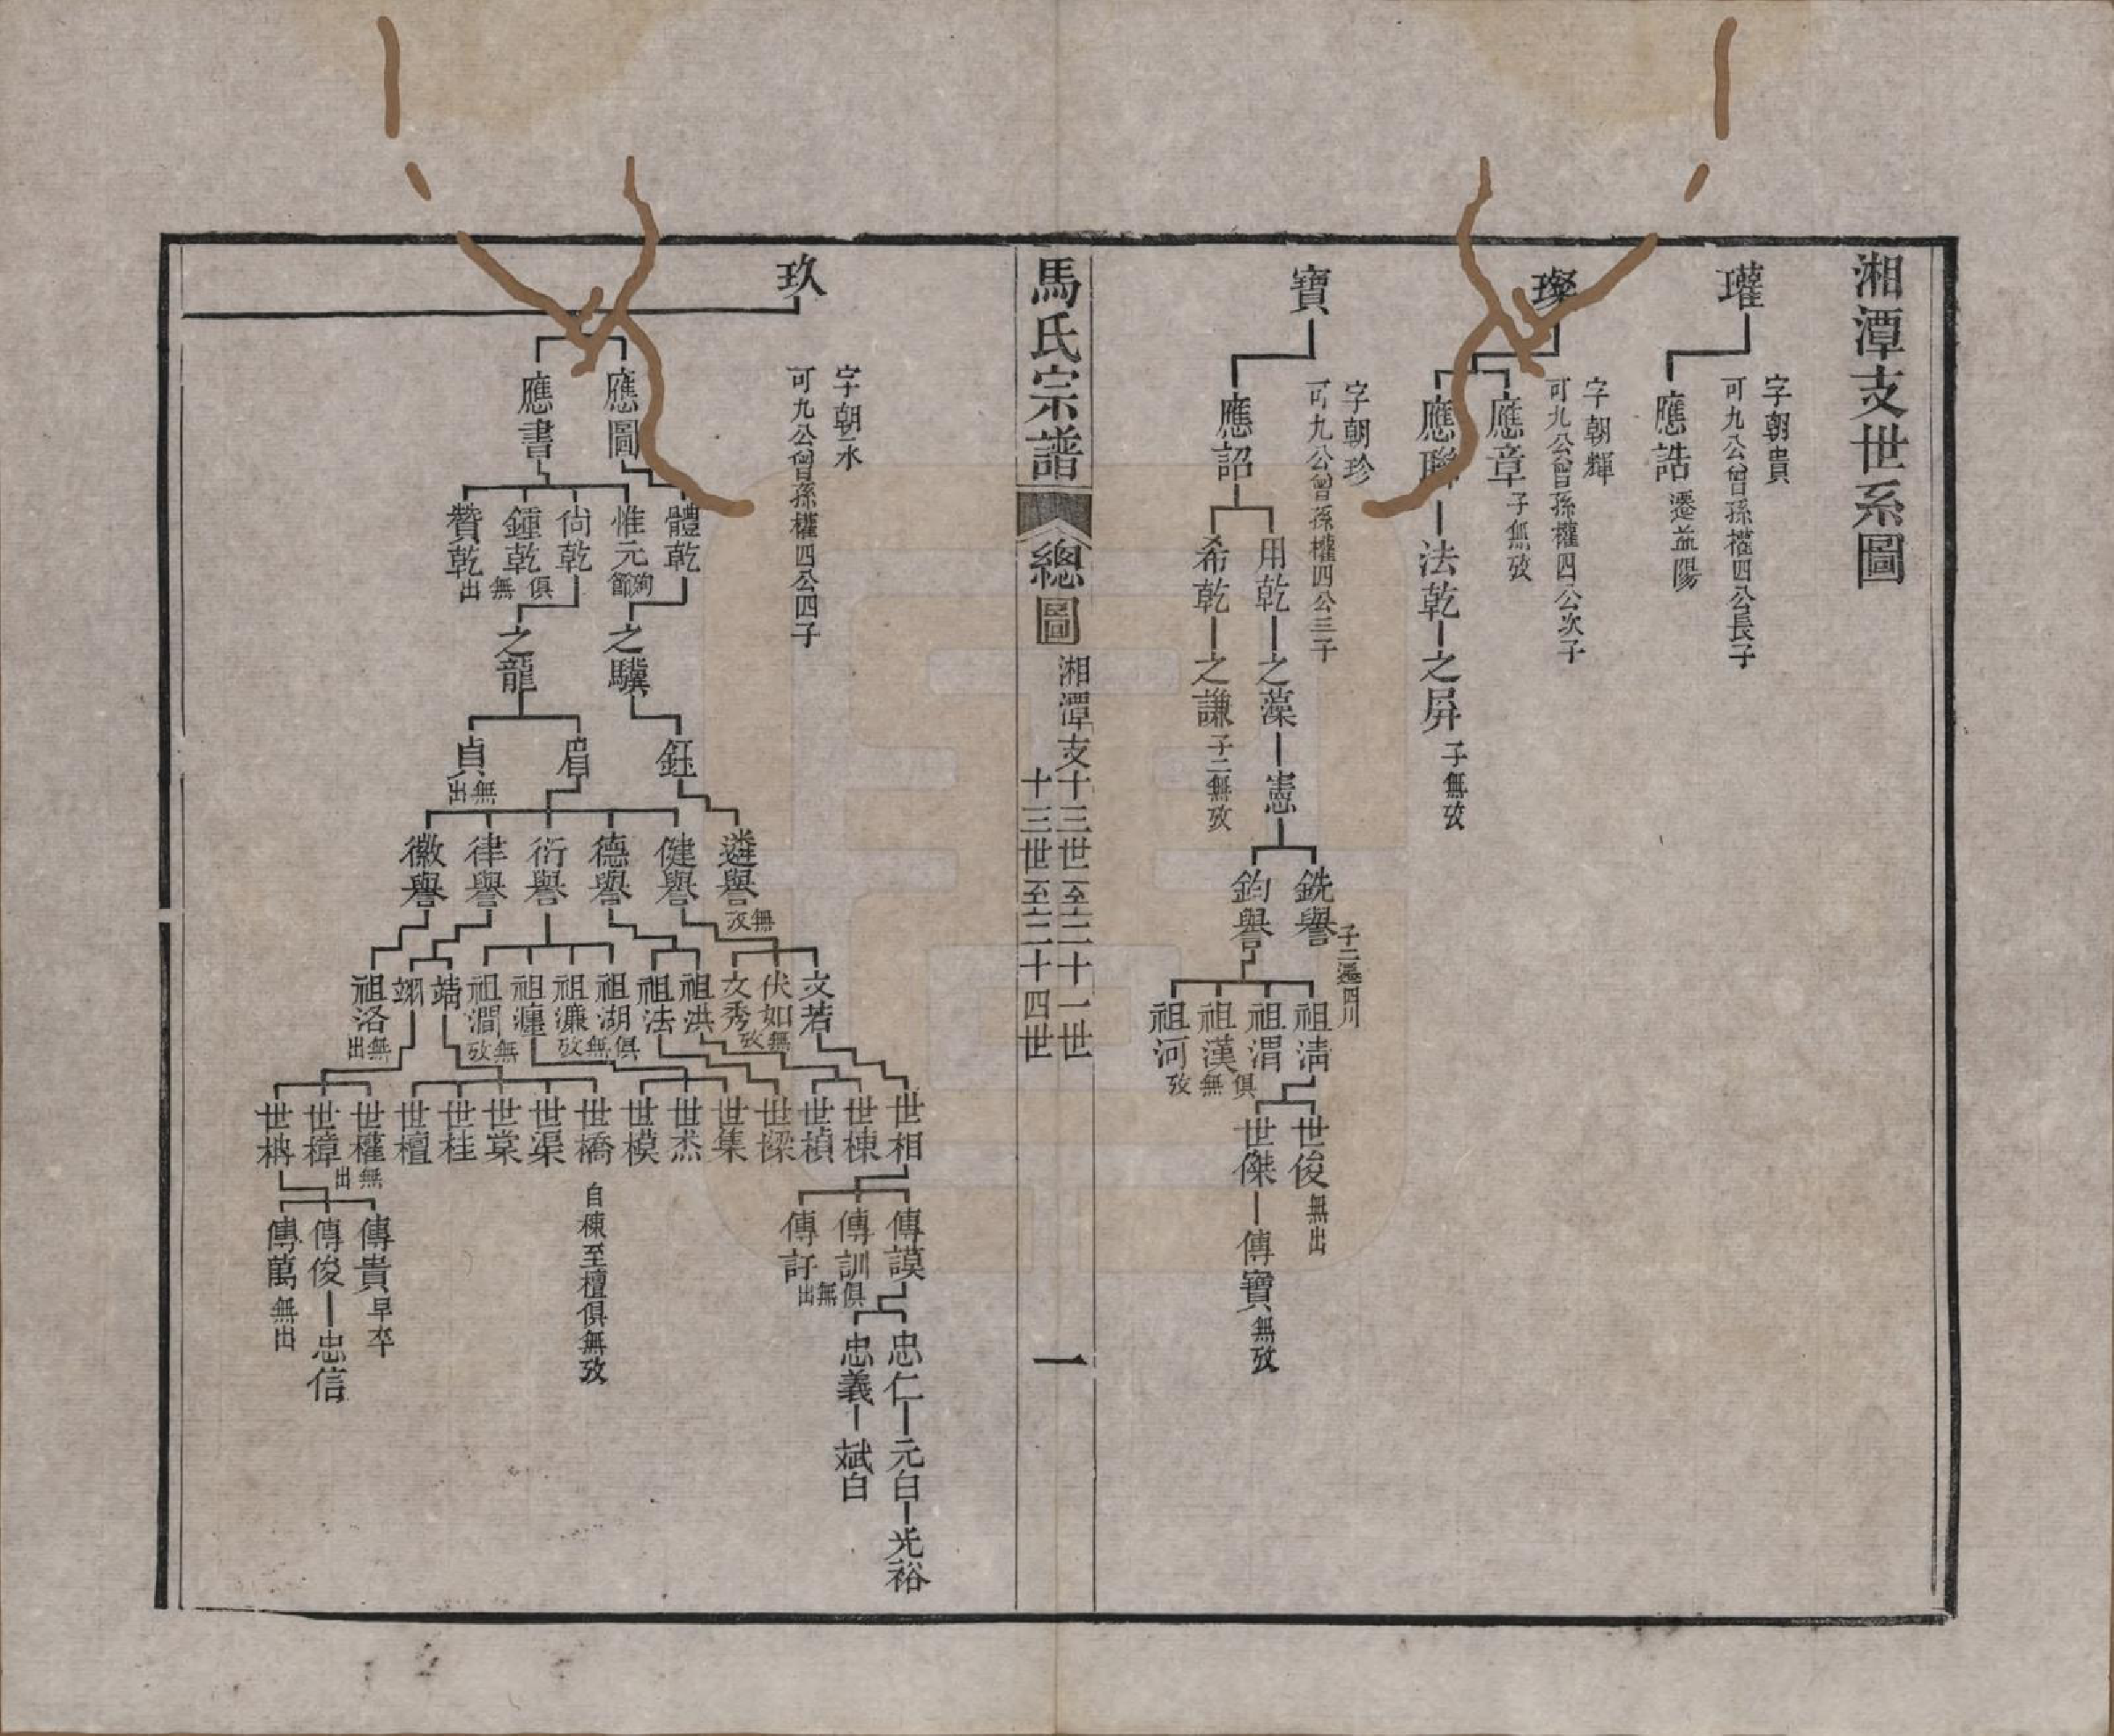 湘潭支世系圖
瓘
字朝貴
可九公曾孫權四公長子
應誥
遷益陽
璨
字朝輝
可九公曾孫權四公次子
應章
子無攷
應聯
法乾
之屏
子無攷
寶
字朝珍
可九公曾孫權四公三子
應詔
用乾
之藻
憲
銑譽
子二遷四川
鈞譽
祖清
祖渭
祖漢
祖河
俱無攷
世俊
無出
世傑
傳寶
無攷
希乾
之謙
子二無攷
馬氏宗譜
總圖
湘潭支
十三世至二十一世
十三世至二十四世
一
玖
字朝永
可九公曾孫權四公四子
應圖
應書
體乾
惟元
尙乾
鍾乾
贊乾
俱無出
之驥
之龍
鈺
眉
貞
無出
遴譽
無攷
健譽
德譽
衍譽
律譽
徽譽
文若
伏如
文秀
無攷
祖洪
祖法
祖湖
祖濂
祖瀍
俱無攷
祖澗
無攷
靖
翊
祖洛
無出
世相
世棟
世楨
世樑
世集
世杰
世模
世橋
世渠
世棠
世桂
世檀
自棟至檀俱無攷
世權
世樟
無出
世柟
傳謨
傳訓
傳訏
俱無出
忠仁
元白
光裕
忠義
斌白
傳貴
早卒
傳俊
忠信
傳萬
無出